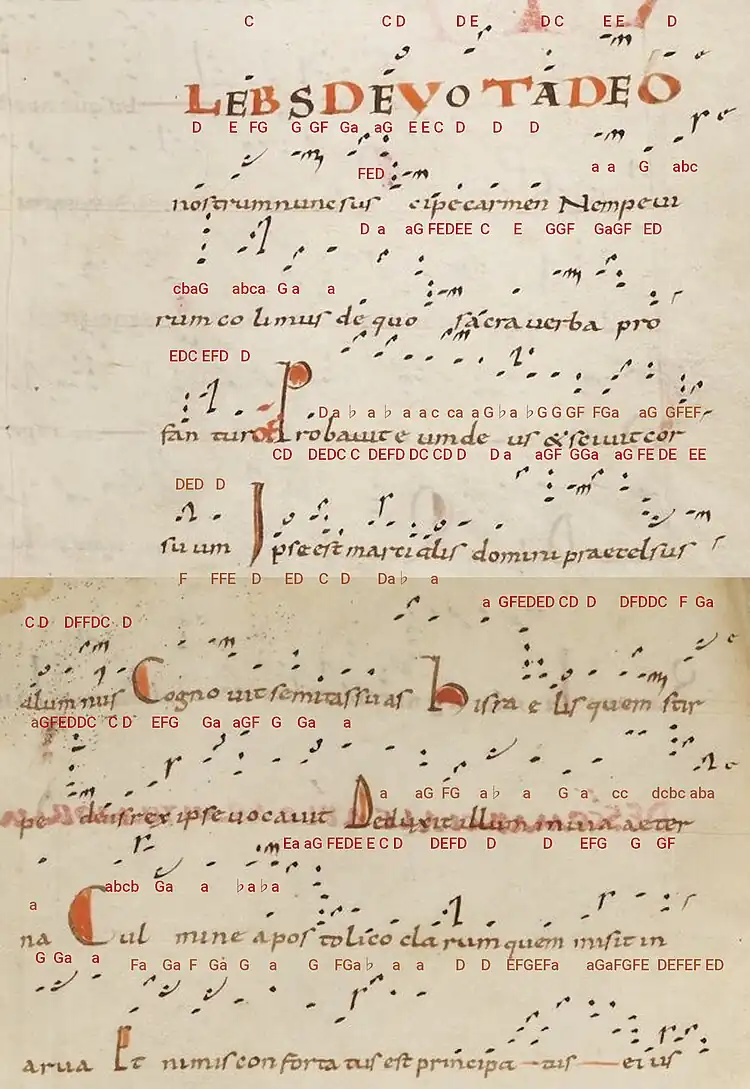 C C D D E D C E E D
LEBS DEVOTA DEO
D E FG G GF Ga aG E E C D D D
FED a a G abc
nostrum nunc sus cipe carmen Nempe ui
D a aG FEDEE C E GGF GaGF ED
cbaG abca G a a
rum co limus de quo sacra uerba pro
EDC EFD D
D a ♭ a ♭ a a c ca a G ♭a ♭G G GF FGa aG GFEF
fan tur Probauit e um de us & sciuit cor
CD DEDC C DEFD DC CD D D a aGF GGa aG FE DE EE
DED D
su um Ipse est martialis domini praecelsus
F FFE D ED C D Da♭ a
C D DFFDC D a GFEDED CD D DFDDC F Ga
alumnus Cognouit semitas suas hisra e lis quem stir
aGFEDDC C D EFG Ga aGF G Ga a
a aG FG a♭ a G a cc dcbc aba
pe deus rex ipse uocauit Deduxit illum in uia aeter
Ea aG FEDE E C D DEFD D D EFG G GF
a abcb Ga a ♭a♭a
na Cul mine apostolico clarum quem misit in
G Ga a Fa Ga F Ga G a G FGa♭ a a D D EFGEFa aGaFGFE DEFEF ED
arua Et nimis confortatus est principa tus eius